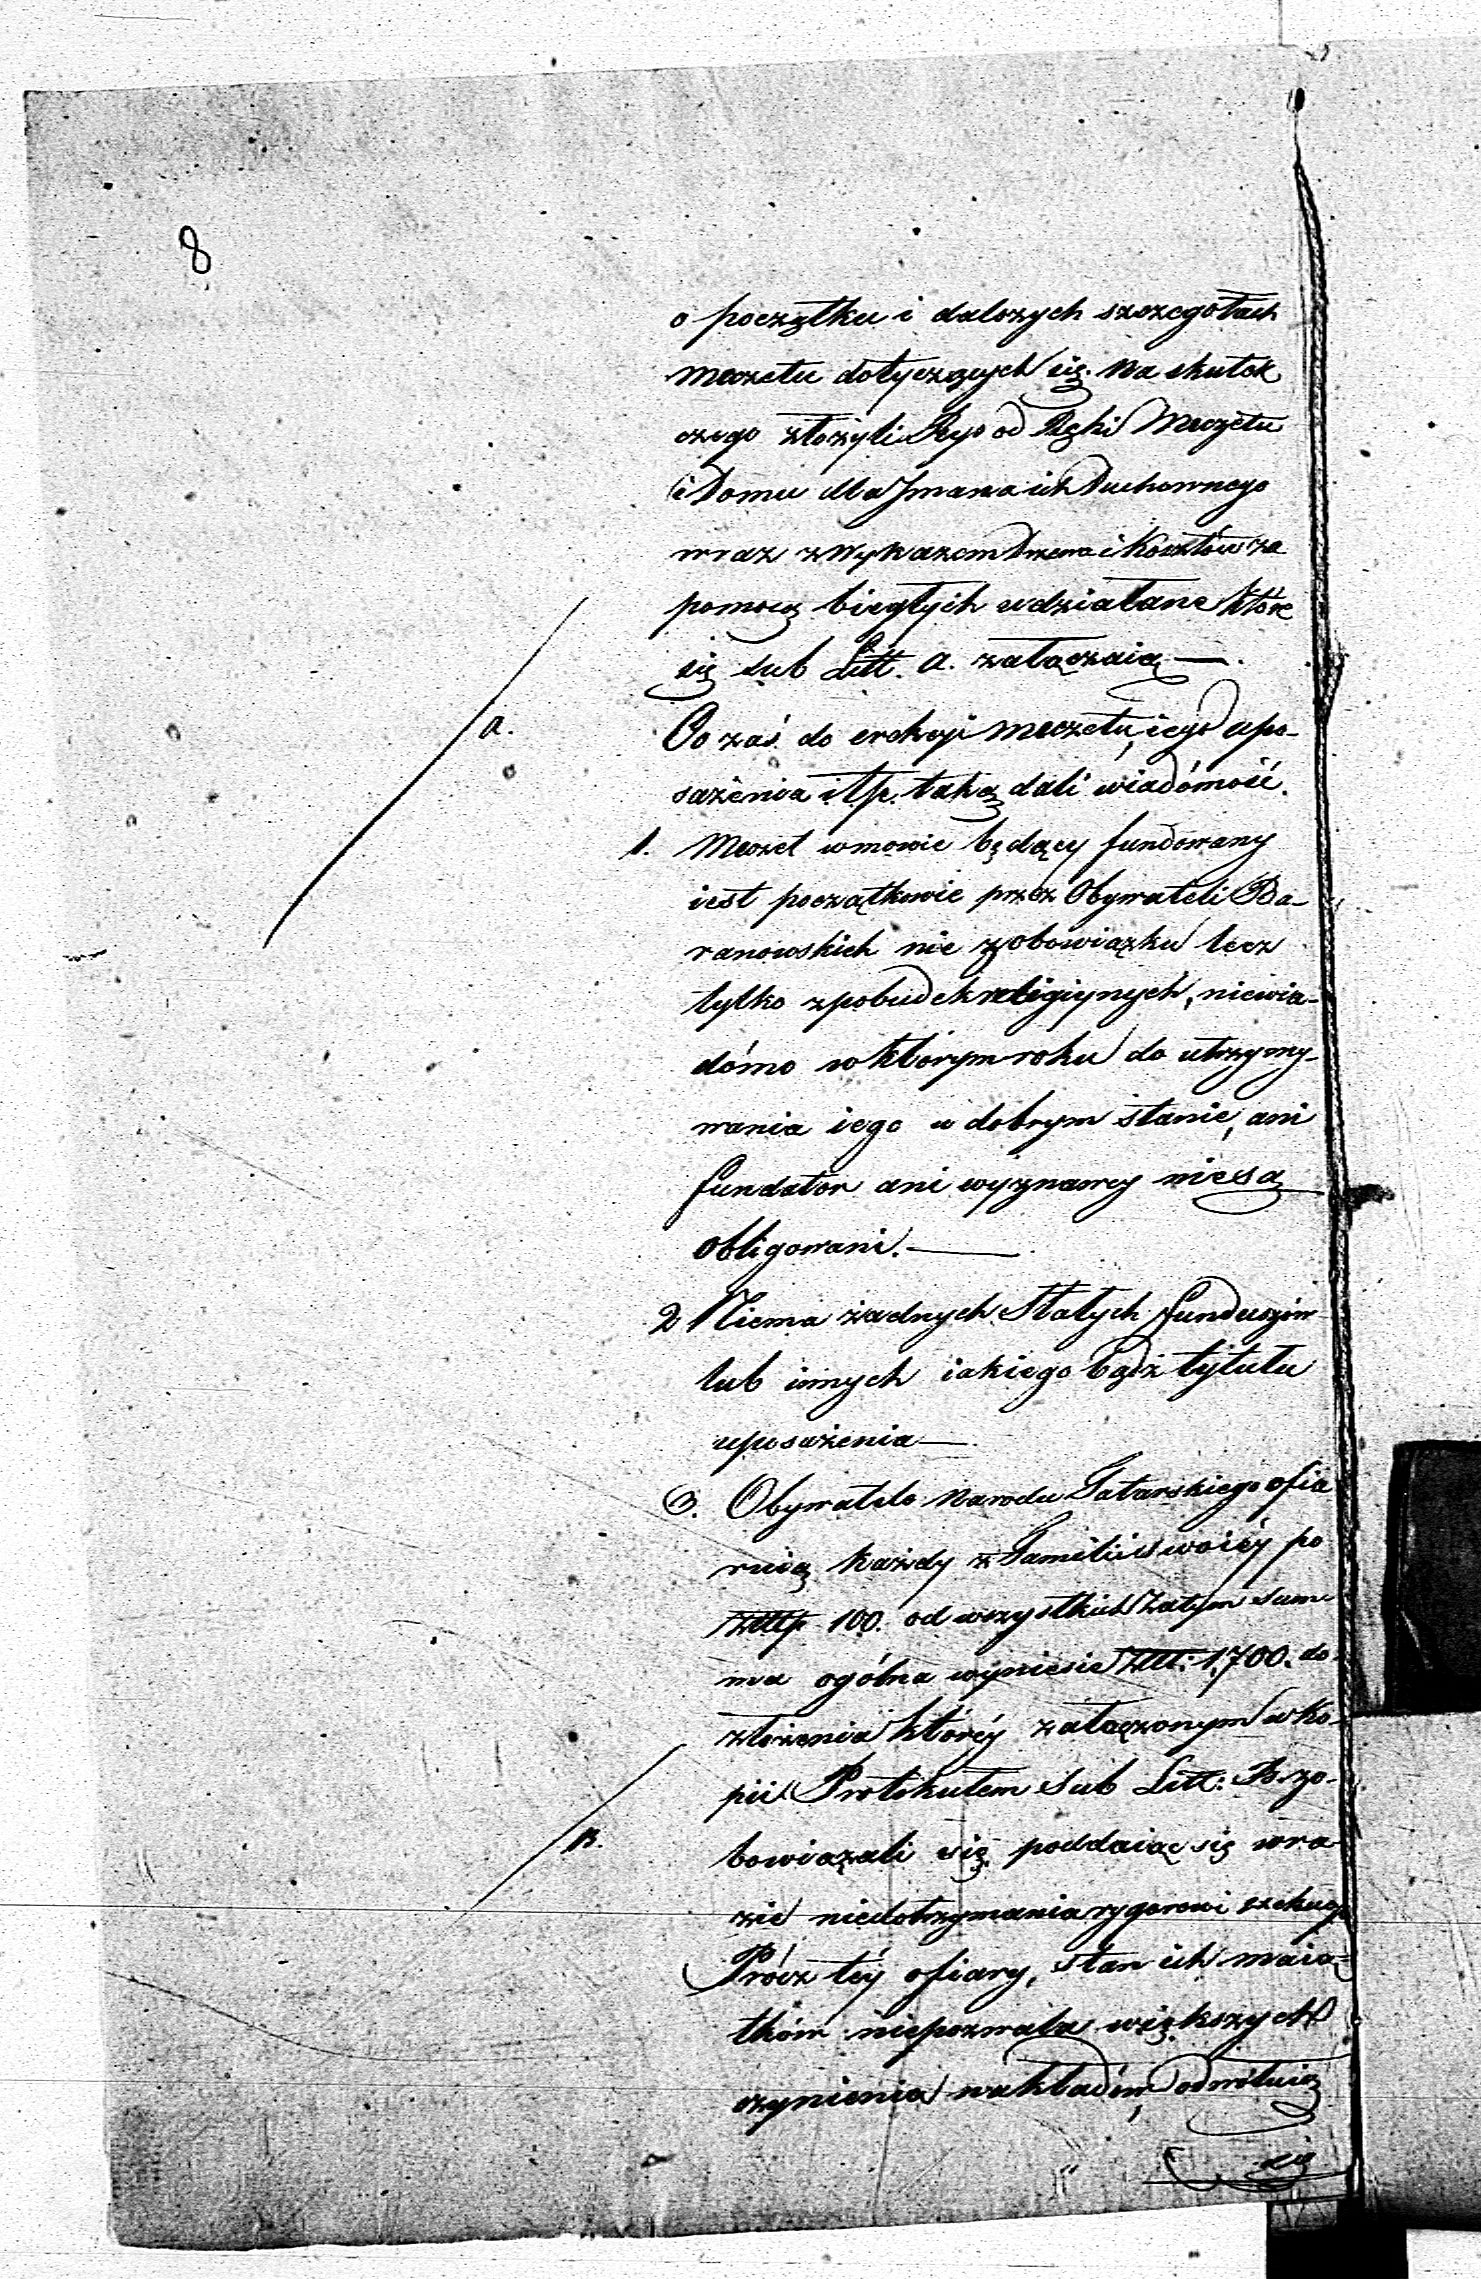 8
o początku i dalszych szczegółach
Meczetu dotyczących się. Na skutek
czego złożyli Rys od Ręki Meczetu
i Domu dla Imana ich Duchownego
wraz z Wykazem Drzewa i Kosztów za
pomocą biegłych wdziałane które
się sub Litt. a. załączaią —.
a.
Co zaś do erekcyi Meczetu, iego upo-
sażenia itp. taką dali wiadómość.
1. Meczet w mowie będący fundowany
iest początkowie przez Obywateli Ba-
ranowskich nie z obowiązku lecz
tylko z pobudek religiynych, niewia-
dómo w którym roku do utrzymy-
wania iego w dobrym stanie, ani
fundator ani wyznawcy nie są
obligowani. —
2 Niema żadnych Stałych funduszów
lub innych iakiego bądź tytułu
uposażenia —.
3. Obywatele Narodu Tatarskiego ofia
ruią każdy z Familii swoiéy po
złtp 100. od wszystkich zatym sum
ma ogólna wyniesie złt: 1,700. do
złożenia któréy załączonym w ko-
pii Protokułem Sub Litt: B. zo-
B.
bowiązali się poddaiąc się w ra
zie niedotrzymania rygorowi exekucyi
Prócz téy ofiary, stan ich maią-
tków niepozwala większych
czynienia nakładów, odwółuią
się